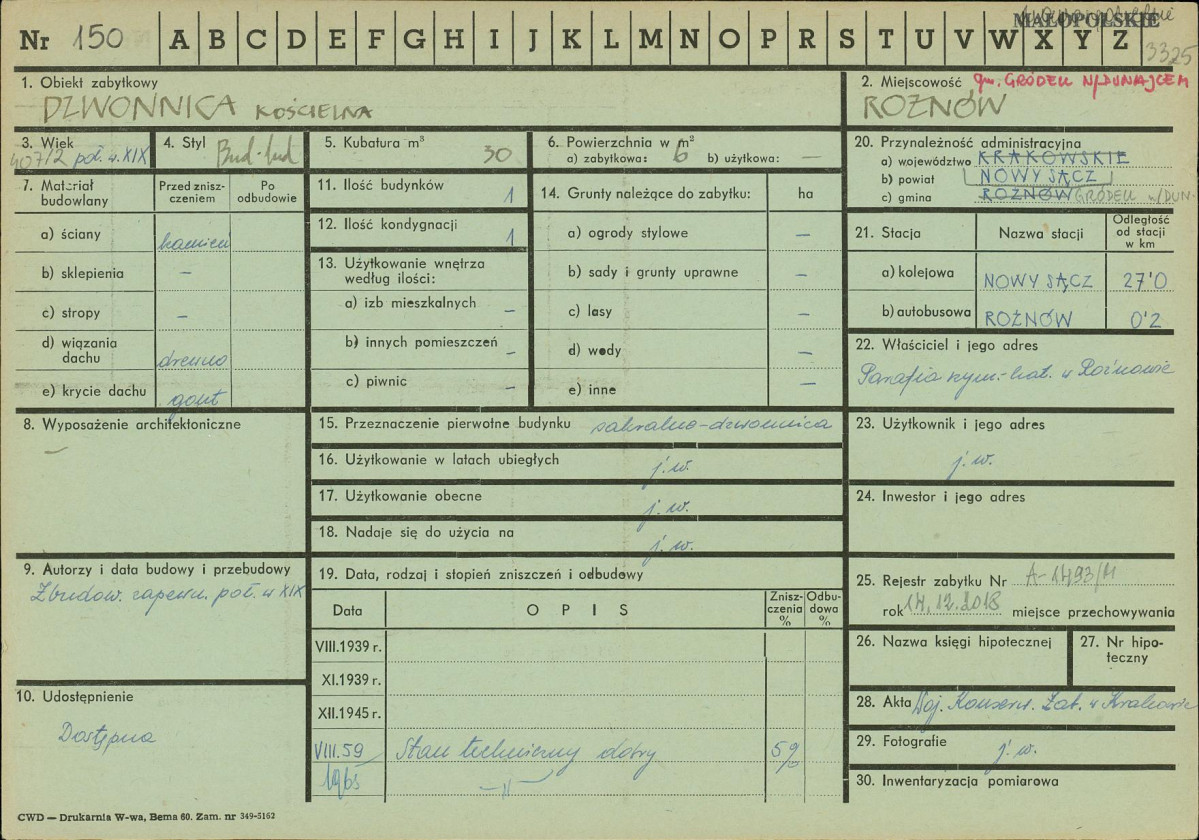 MAŁOPOLSKIE
Nr 150 A B C D E F G H I J K L M N O P R S T U V W X Y Z
3325
1. Obiekt zabytkowy
DZWONNICA KOŚCIELNA
2. Miejscowość gm. GRÓDEK N/DUNAJCEM
ROŻNÓW
3. Wiek
poł. w. XIX
4. Styl Bud-lud
5. Kubatura m³
30
6. Powierzchnia w m²
a) zabytkowa: 6 b) użytkowa: —
7. Materiał budowlany
Przed zniszczeniem
Po odbudowie
a) ściany kamień
b) sklepienia –
c) stropy –
d) wiązania dachu drewno
e) krycie dachu gont
8. Wyposażenie architektoniczne
–
9. Autorzy i data budowy i przebudowy
Zbudow. zapewn. poł. w XIX
10. Udostępnienie
Dostępna
11. Ilość budynków 1
12. Ilość kondygnacji 1
13. Użytkowanie wnętrza według ilości:
a) izb mieszkalnych –
b) innych pomieszczeń –
c) piwnic –
14. Grunty należące do zabytku: ha
a) ogrody stylowe –
b) sady i grunty uprawne –
c) lasy –
d) wody –
e) inne –
15. Przeznaczenie pierwotne budynku sakralno-dzwonnica
16. Użytkowanie w latach ubiegłych j.w.
17. Użytkowanie obecne j.w.
18. Nadaje się do użycia na j.w.
19. Data, rodzaj i stopień zniszczeń i odbudowy
Data OPIS Zniszczenia % Odbudowa %
VIII.1939 r.
XI.1939 r.
XII.1945 r.
VIII.59 Stan techniczny dobry 5%
1965 –"–
20. Przynależność administracyjna
a) województwo KRAKOWSKIE
b) powiat NOWY SĄCZ
c) gmina ROŻNÓW GRÓDEK N/DUN.
21. Stacja Nazwa stacji Odległość od stacji w km
a) kolejowa NOWY SĄCZ 27'0
b) autobusowa ROŻNÓW 0'2
22. Właściciel i jego adres
Parafia rzym.-kat. w Rożnowie
23. Użytkownik i jego adres
j.w.
24. Inwestor i jego adres
25. Rejestr zabytku Nr A-1493/M
rok 14.12.2018 miejsce przechowywania
26. Nazwa księgi hipotecznej
27. Nr hipoteczny
28. Akta Woj. Konserw. Zab. w Krakowie
29. Fotografie j.w.
30. Inwentaryzacja pomiarowa
CWD — Drukarnia W-wa, Bema 60. Zam. nr 349-5162